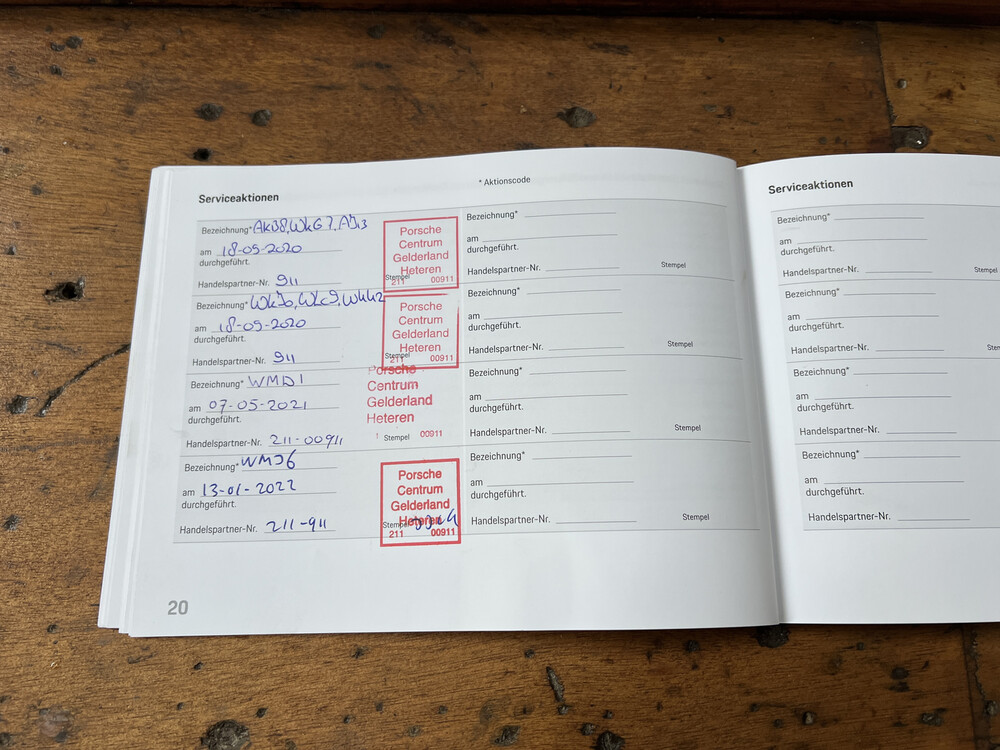 Serviceaktionen
* Aktionscode
Bezeichnung* AKB8, WKG7, AJ13
am 18-09-2020
durchgeführt.
Handelspartner-Nr. 911
Stempel
Porsche
Centrum
Gelderland
Heteren
211 00911
Bezeichnung* WKJ0, WLC9, WKH2
am 18-09-2020
Handelspartner-Nr. 911
Stempel
Porsche
Centrum
Gelderland
Heteren
211 00911
Bezeichnung* WMD1
am 07-05-2021
durchgeführt.
Handelspartner-Nr. 211-00911
Stempel
Porsche
Centrum
Gelderland
Heteren
00911
Bezeichnung* WMJ6
am 13-01-2022
durchgeführt.
Handelspartner-Nr. 211-911
Stempel
Porsche
Centrum
Gelderland
Heteren
211 00911
Bezeichnung*
am
durchgeführt.
Handelspartner-Nr. Stempel
Bezeichnung*
am
durchgeführt.
Handelspartner-Nr. Stempel
Bezeichnung*
am
durchgeführt.
Handelspartner-Nr. Stempel
Bezeichnung*
am
durchgeführt.
Handelspartner-Nr. Stempel
20
Serviceaktionen
Bezeichnung*
am
durchgeführt.
Handelspartner-Nr. Stempel
Bezeichnung*
am
durchgeführt.
Handelspartner-Nr.
Bezeichnung*
am
durchgeführt.
Handelspartner-Nr.
Bezeichnung*
am
durchgeführt.
Handelspartner-Nr.